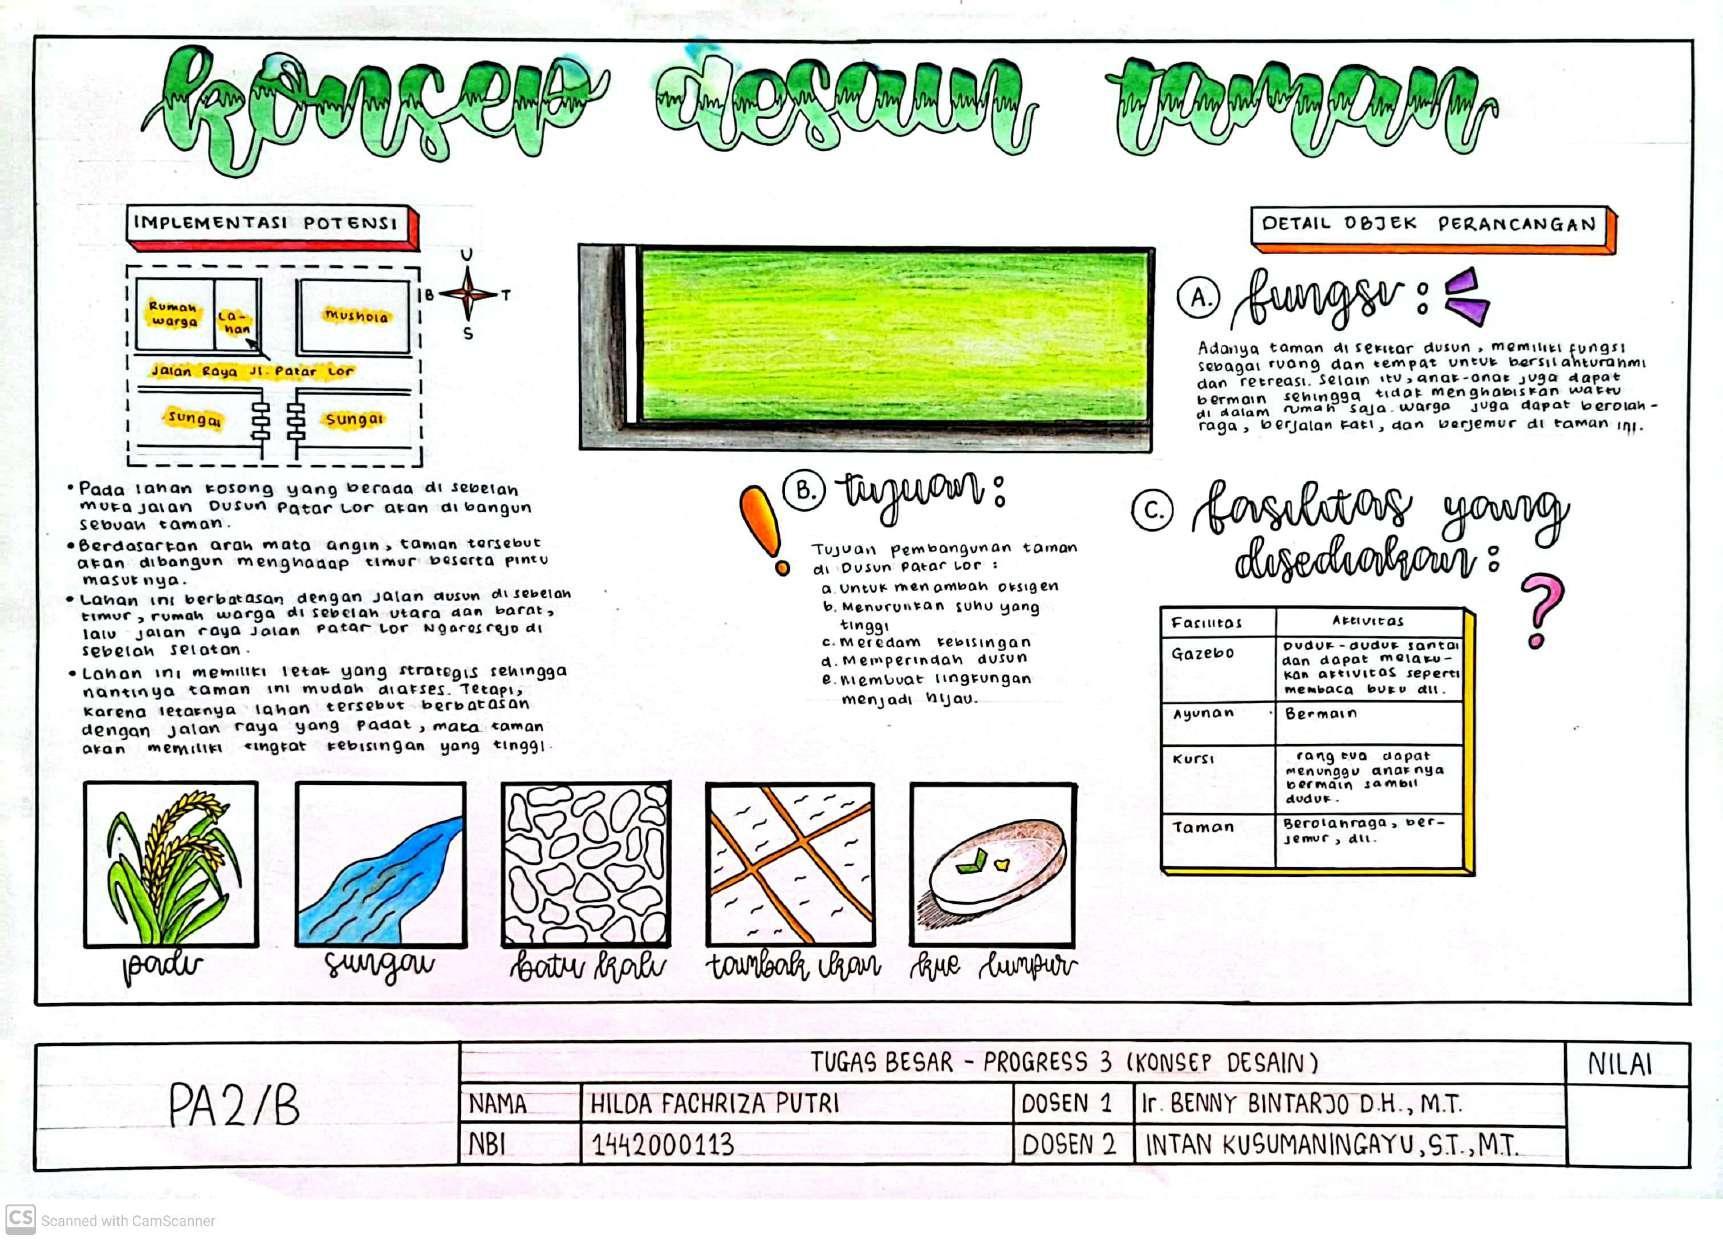 konsep desain taman
IMPLEMENTASI POTENSI
U
B
T
S
Rumah
warga
La-
han
mushola
Jalan Raya Jl. Patar Lor
sungai
sungai
• Pada lahan kosong yang berada di sebelah
muka jalan Dusun Patar Lor akan dibangun
sebuah taman.
• Berdasarkan arah mata angin, taman tersebut
akan dibangun menghadap timur beserta pintu
masuknya.
• Lahan ini berbatasan dengan jalan dusun di sebelah
timur, rumah warga di sebelah utara dan barat,
lalu jalan raya Jalan Patar Lor Ngarosrejo di
sebelah selatan.
• Lahan ini memiliki letak yang strategis sehingga
nantinya taman ini mudah diakses. Tetapi,
karena letaknya lahan tersebut berbatasan
dengan jalan raya yang padat, maka taman
akan memiliki tingkat kebisingan yang tinggi.
DETAIL OBJEK PERANCANGAN
A. fungsi :
Adanya taman di sekitar dusun, memiliki fungsi
sebagai ruang dan tempat untuk bersilahturahmi
dan rekreasi. Selain itu, anak-anak juga dapat
bermain sehingga tidak menghabiskan waktu
di dalam rumah saja. Warga juga dapat berolah-
raga, berjalan kaki, dan berjemur di taman ini.
B. tujuan :
Tujuan pembangunan taman
di Dusun Patar Lor :
a. Untuk menambah oksigen
b. Menurunkan suhu yang
tinggi
c. Meredam kebisingan
d. Memperindah dusun
e. Membuat lingkungan
menjadi hijau.
C. fasilitas yang
disediakan :
Fasilitas Aktivitas
Gazebo Duduk-duduk santai
dan dapat melaku-
kan aktivitas seperti
membaca buku dll.
Ayunan Bermain
Kursi rang tua dapat
menunggu anaknya
bermain sambil
duduk.
Taman Berolahraga, ber-
jemur, dll.
padi
sungai
batu kali
tambak ikan
kue lumpur
PA2/B
TUGAS BESAR - PROGRESS 3 (KONSEP DESAIN)
NILAI
NAMA HILDA FACHRIZA PUTRI DOSEN 1 Ir. BENNY BINTARJO D.H., M.T.
NBI 1442000113 DOSEN 2 INTAN KUSUMANINGAYU, S.T., M.T.
CS Scanned with CamScanner